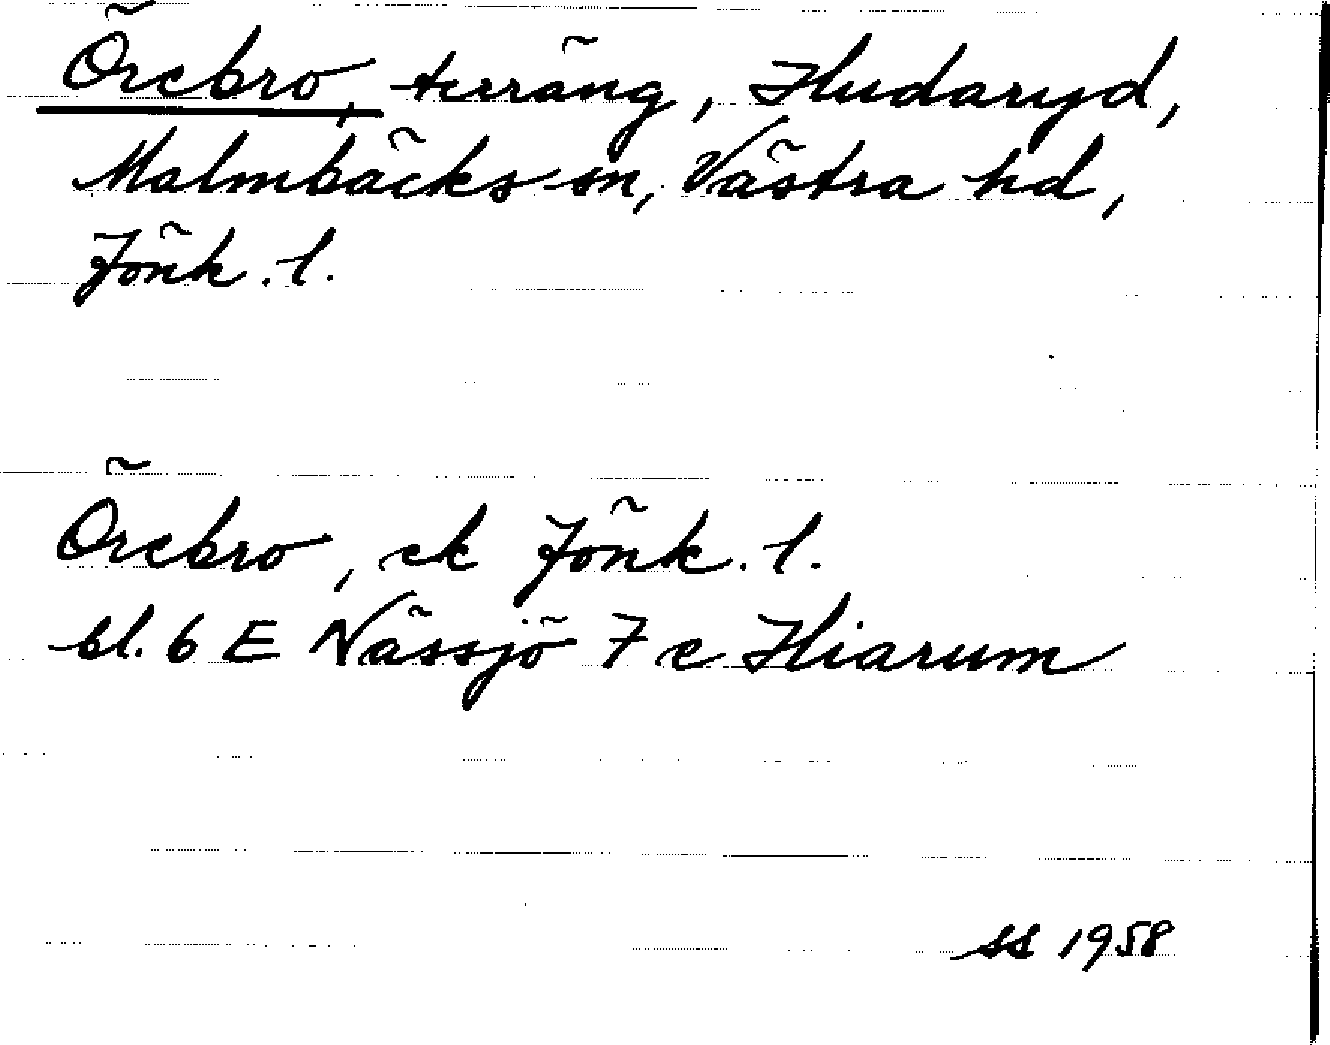 Örebro, terräng, Hudaryd,
Malmbäcks sn, Västra hd,
Jönk. l.
Örebro, ek Jönk. l.
bl. 6 E Nässjö 7 c Hiarum
SS 1958